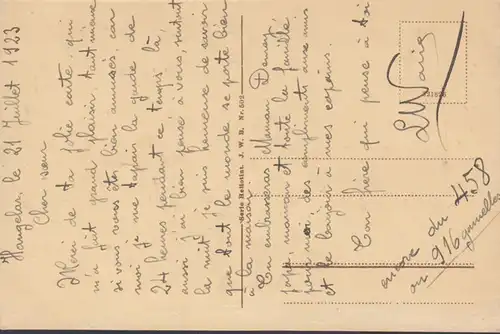 Hangelar, le 21 Juillet 1923
Cher sœur
Merci de ta jolie carte, qui
m'a fait grand plaisir. Tant mieux
si vous vous êtes bien amusés, car
moi je me tapais la guide de
24 heures pendant ce temps là,
aussi j'ai bien pensé à vous, surtout
la nuit, je suis heureux de savoir
que tout le monde se porte bien
à la maison
Serie Heliotint. J. W. B. Nr. 502
Tu embrasseras Maman
papa, maman et toute la famille,
pour moi des compliments aux amis
et le bonjour à mes copains.
Ton frère qui pense à toi
encore du 458
ou 916